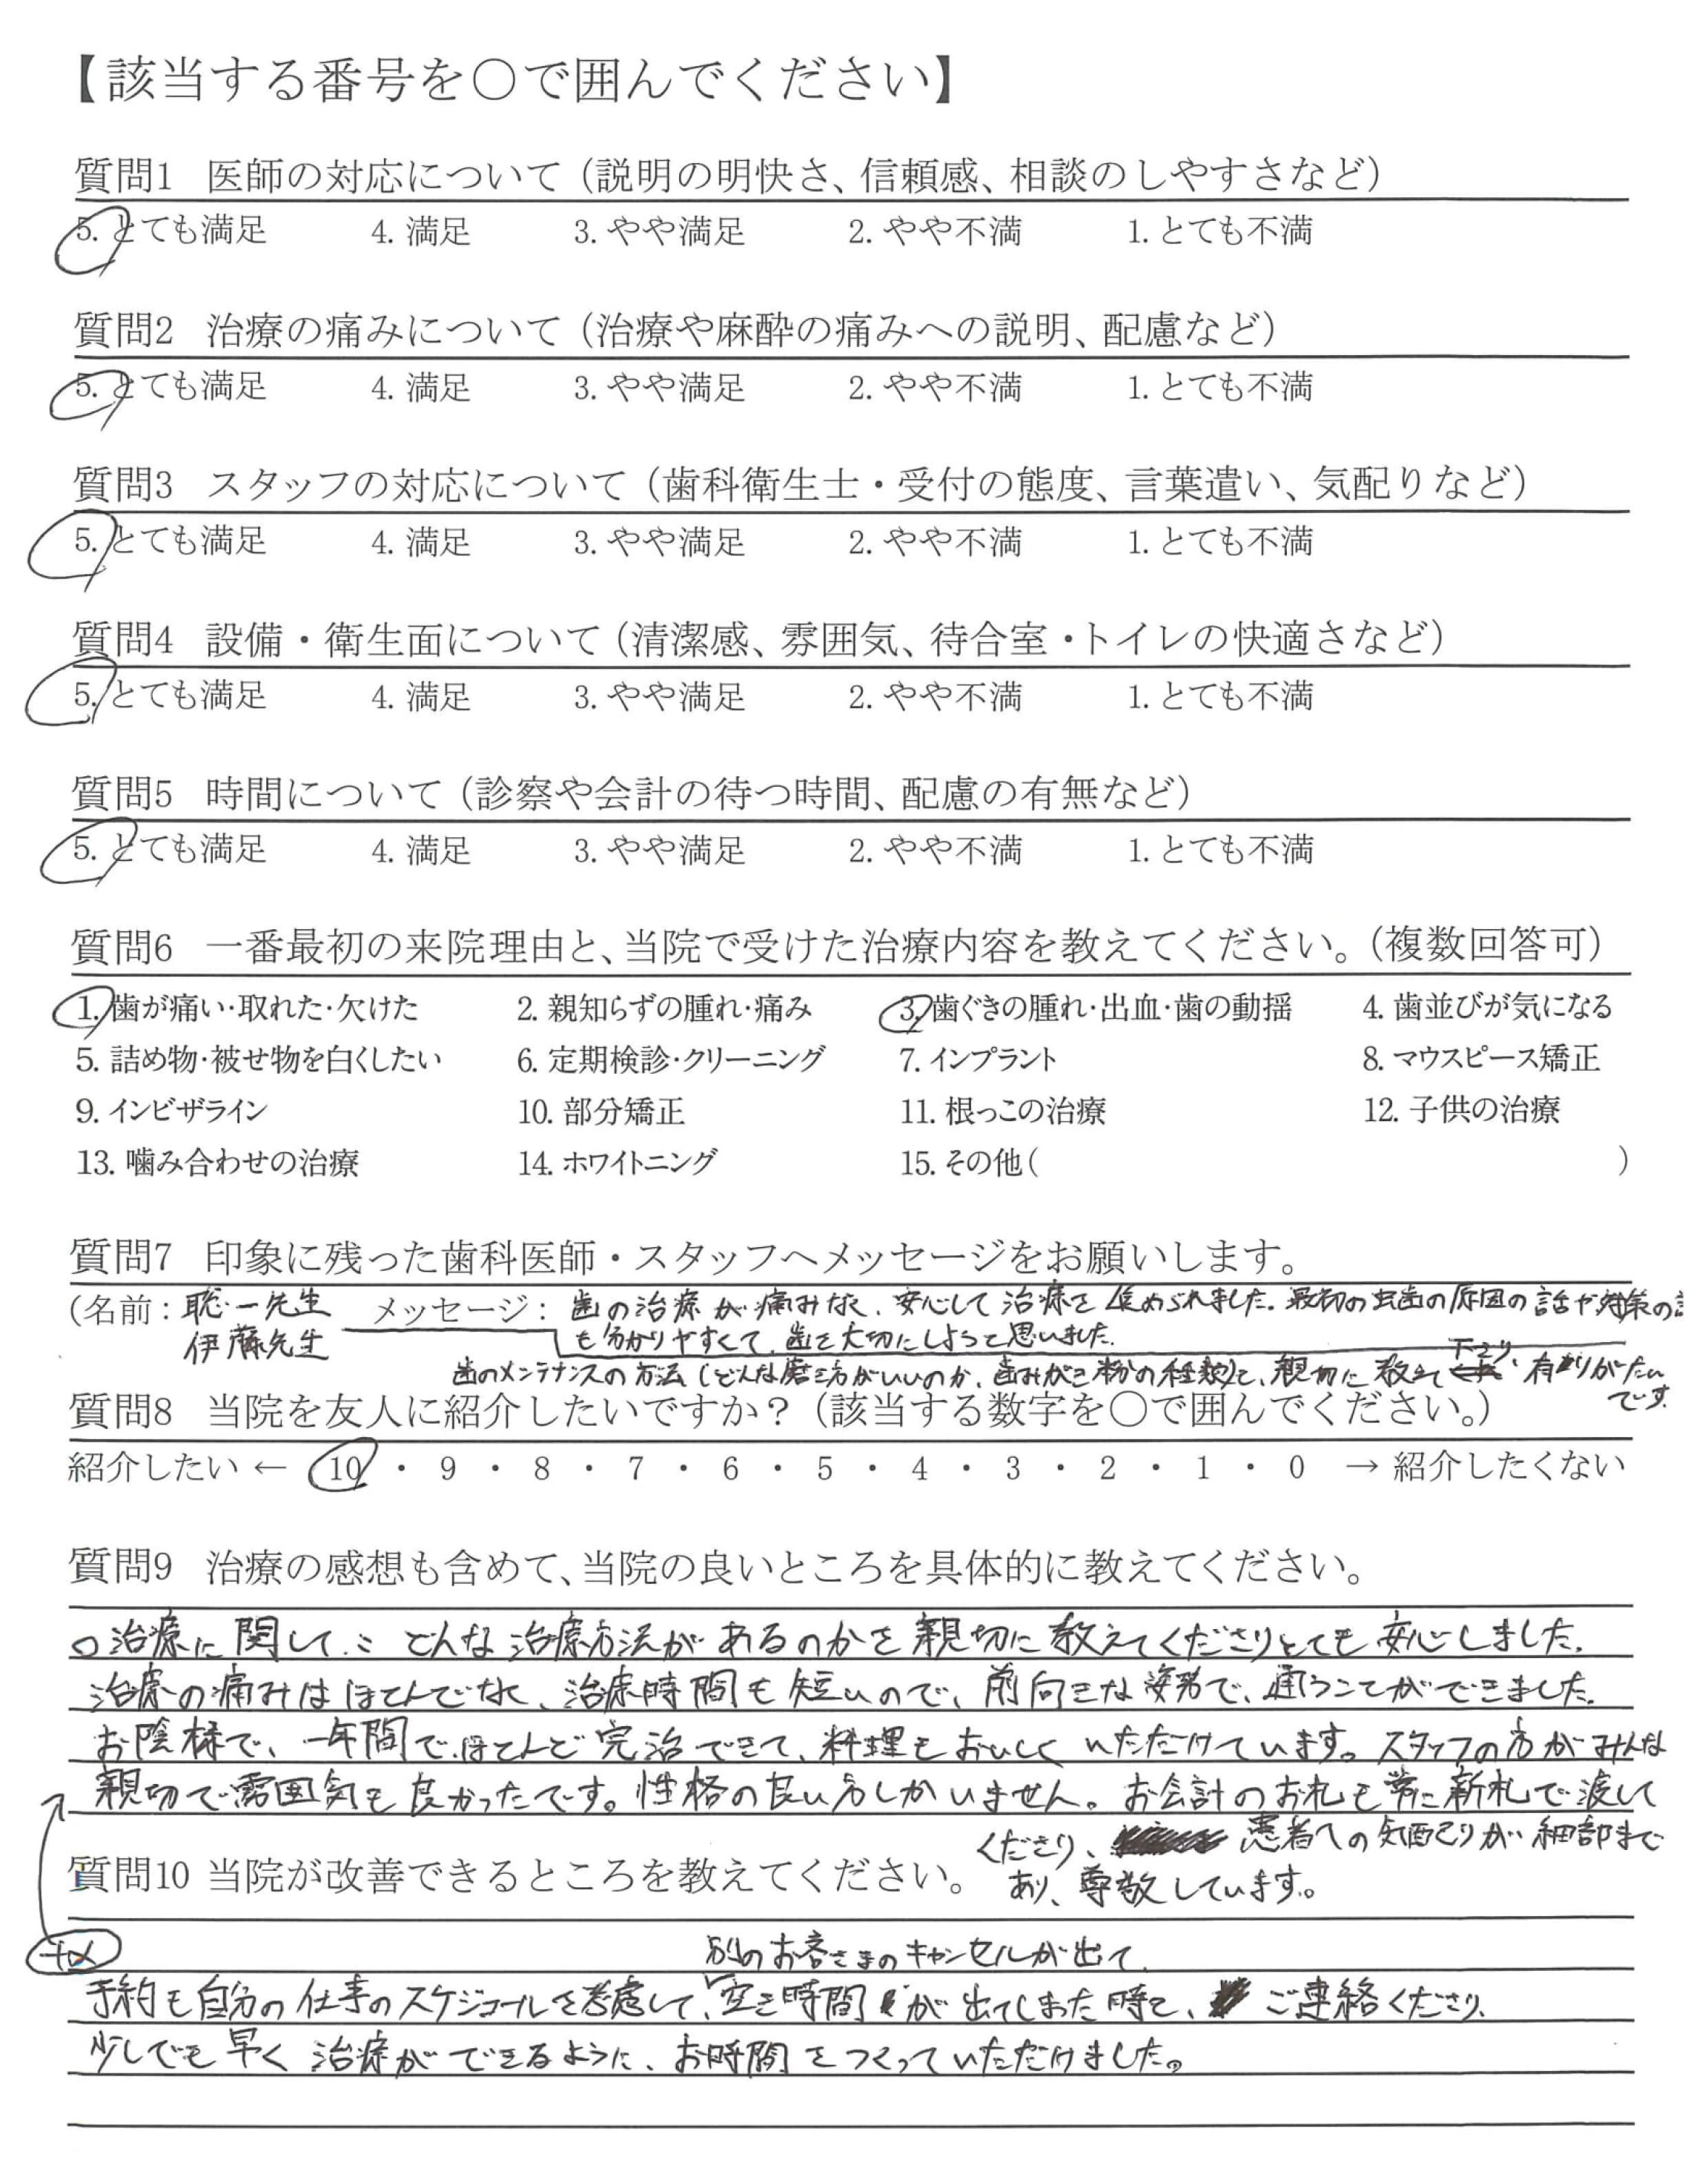 【該当する番号を〇で囲んでください】
質問1 医師の対応について（説明の明快さ、信頼感、相談のしやすさなど）
5. とても満足 4. 満足 3. やや満足 2. やや不満 1. とても不満
質問2 治療の痛みについて（治療や麻酔の痛みへの説明、配慮など）
5. とても満足 4. 満足 3. やや満足 2. やや不満 1. とても不満
質問3 スタッフの対応について（歯科衛生士・受付の態度、言葉遣い、気配りなど）
5. とても満足 4. 満足 3. やや満足 2. やや不満 1. とても不満
質問4 設備・衛生面について（清潔感、雰囲気、待合室・トイレの快適さなど）
5. とても満足 4. 満足 3. やや満足 2. やや不満 1. とても不満
質問5 時間について（診察や会計の待つ時間、配慮の有無など）
5. とても満足 4. 満足 3. やや満足 2. やや不満 1. とても不満
質問6 一番最初の来院理由と、当院で受けた治療内容を教えてください。（複数回答可）
1. 歯が痛い・取れた・欠けた 2. 親知らずの腫れ・痛み 3. 歯ぐきの腫れ・出血・歯の動揺 4. 歯並びが気になる
5. 詰め物・被せ物を白くしたい 6. 定期検診・クリーニング 7. インプラント 8. マウスピース矯正
9. インビザライン 10. 部分矯正 11. 根っこの治療 12. 子供の治療
13. 噛み合わせの治療 14. ホワイトニング 15. その他（ ）
質問7 印象に残った歯科医師・スタッフへメッセージをお願いします。
（名前：聡一先生 メッセージ：歯の治療が痛みなく、安心して治療を進められました。最初の虫歯の原因の話や対策の
伊藤先生 も分かりやすくて、歯を大切にしようと思いました。
歯のメンテナンスの方法（どんな磨き方がいいのか、歯みがき粉の種類）を、親切に教えて下さり、有りがたい
です。
質問8 当院を友人に紹介したいですか？（該当する数字を〇で囲んでください。）
紹介したい ← 10 ・ 9 ・ 8 ・ 7 ・ 6 ・ 5 ・ 4 ・ 3 ・ 2 ・ 1 ・ 0 → 紹介したくない
質問9 治療の感想も含めて、当院の良いところを具体的に教えてください。
○治療に関して、どんな治療方法があるのかを親切に教えてくださりとても安心しました。
治療の痛みはほとんどなく、治療時間も短いので、前向きな姿勢で、通うことができました。
お陰様で、一年間でほとんど完治できて、料理もおいしくいただけています。スタッフの方がみんな
親切で雰囲気も良かったです。性格の良い方しかいません。お会計のお札も常に新札で渡して
くださり、患者への気配りが細部まで
質問10 当院が改善できるところを教えてください。
あり、尊敬しています。
+α
別のお客さまのキャンセルが出て
予約も自分の仕事のスケジュールを考慮して、空き時間が出てしまった時も、ご連絡くださり、
少しでも早く治療ができるように、お時間をつくっていただけました。